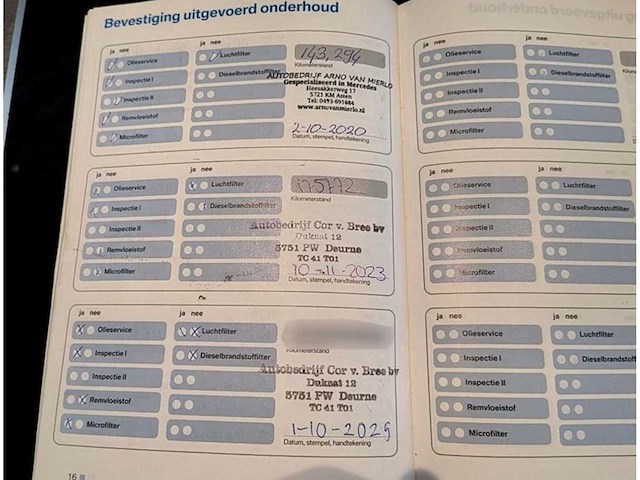 Bevestiging uitgevoerd onderhoud
ja nee ja nee
Olieservice Luchtfilter 143,294
Kilometerstand
Inspectie I Dieselbrandstoffilter
AUTOBEDRIJF ARNO VAN MIERLO
Gespecialiseerd in Mercedes
Inspectie II Heesakkerweg 17
5721 KM Asten
Remvloeistof Tel: 0493-691684
www.arnovanmierlo.nl
Microfilter 2-10-2020
Datum, stempel, handtekening
ja nee ja nee
Olieservice Luchtfilter 175772
Kilometerstand
Inspectie I Dieselbrandstoffilter
Inspectie II Autobedrijf Cor v. Bree bv
Dukaat 12
Remvloeistof 5751 PW Deurne
TC 41 T01
Microfilter 10-11-2023
Datum, stempel, handtekening
ja nee ja nee
Olieservice Luchtfilter
Kilometerstand
Inspectie I Dieselbrandstoffilter
Autobedrijf Cor v. Bree bv
Inspectie II Dukaat 12
5751 PW Deurne
Remvloeistof TC 41 T01
Microfilter 1-10-2025
Datum, stempel, handtekening
16
ja nee ja nee
Olieservice Luchtfilter
Inspectie I Dieselbrandstoffilter
Inspectie II
Remvloeistof
Microfilter
ja nee ja nee
Olieservice Luchtfilter
Inspectie I Dieselbrandstoffilter
Inspectie II
Remvloeistof
Microfilter
ja nee ja nee
Olieservice Luchtfilter
Inspectie I
Inspectie II
Remvloeistof
Microfilter